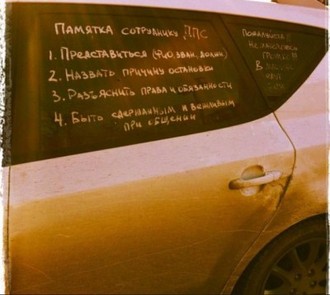 Памятка сотруднику ДПС
1. Представиться (ФИО, зван, должн)
2. Назвать причину остановки
3. Разъяснить права и обязанности
4. Быть сдержанным и вежливым
при общении
Пожалуйста!